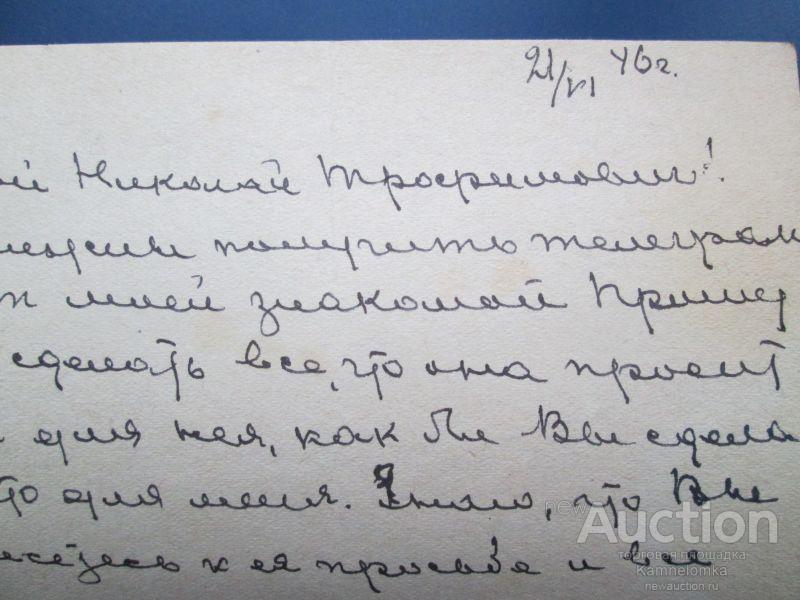 21/VI 46 г.
ой Николай Трофимович!
получить телеграм
моей знакомой
сделать все, что она просит
для нея, как бы Вы сдела
то для меня. Я знаю, что Вы
к ея просьбе и
newAuction
торговая площадка
Kamnelomka
newauction.ru